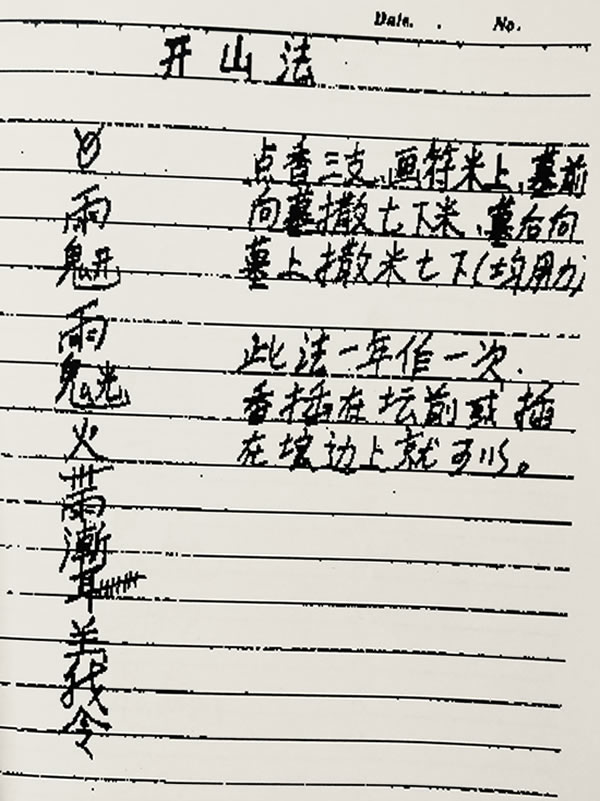 Date. No.
开山法
点香三支、画符米上、墓前
向墓撒七下米、墓后向
墓上撒米七下(均用力)
此法一年作一次.
香插在坛前或插
在墙边上就可以。
雨
雨
火
令